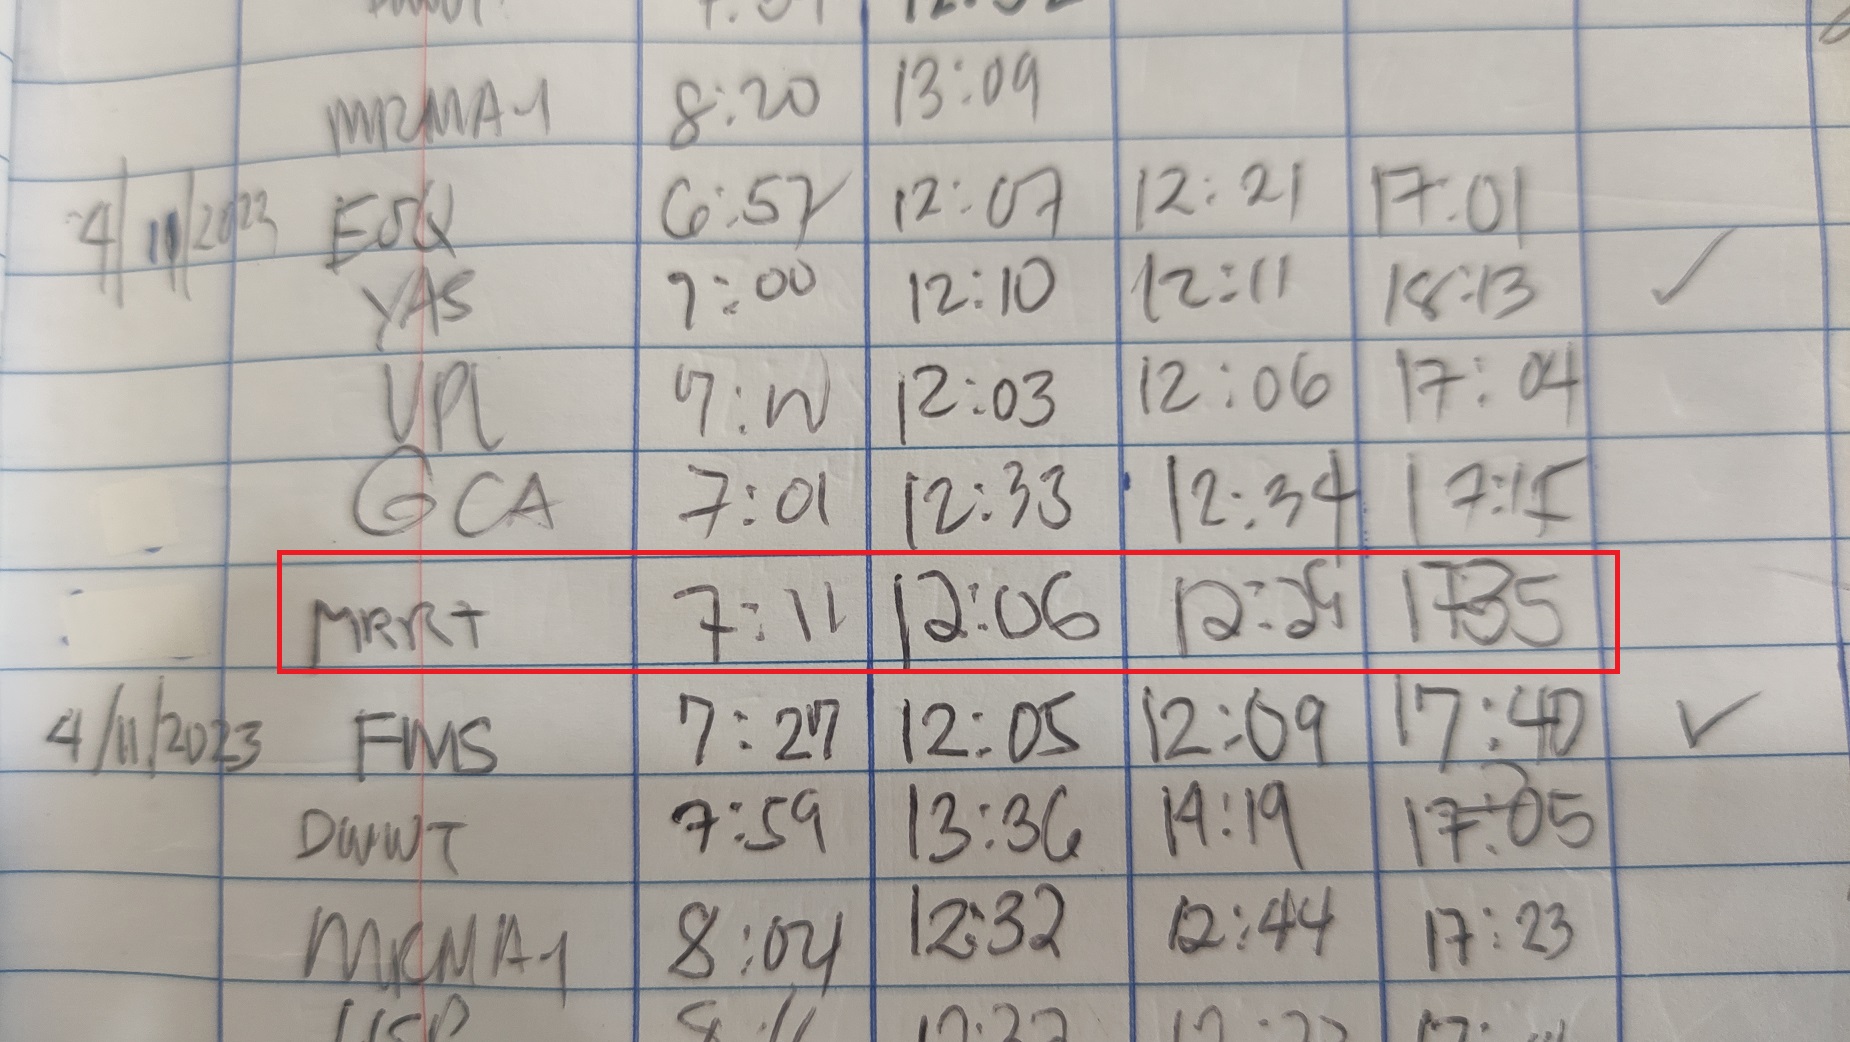 MRMA-1 8:20 13:09
4/11/2023 EOQ 6:57 12:07 12:21 17:01
YAS 7:00 12:10 12:11 18:13 ✓
VPL 12:03 12:06 17:04
GCA 7:01 12:33 12:34 17:15
MRRT 7:11 12:06 1735
4/11/2023 FWS 7:27 12:05 12:09 17:40 ✓
DWWT 7:59 13:36 14:19 17:05
MRMA-1 8:04 12:32 12:44 17:23